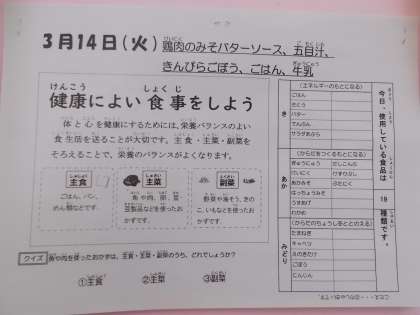 3月14日(火) 鶏肉のみそバターソース、五目汁、
きんぴらごぼう、ごはん、牛乳
健康によい食事をしよう
体と心を健康にするためには、栄養バランスのよい
食生活を送ることが大切です。主食・主菜・副菜を
そろえることで、栄養のバランスがよくなります。
主食
ごはん、パン、
めん類などです。
主菜
魚や肉、卵、豆・
豆製品などを使ったお
かずです。
副菜
野菜や海そう、きの
こ、いもなどを使ったお
かずです。
クイズ 魚や肉を使ったおかずは、主食・主菜・副菜のうち、どれでしょうか?
①主食 ②主菜 ③副菜
今日、使用している食品は 19 種類です。
き
(エネルギーのもとになる)
ごはん
さとう
バター
でんぷん
サラダあぶら
あか
(からだをつくるもとになる)
ぎゅうにゅう
とりにく
あかみそ
ぶたにく
うすあげ
わかめ
みどり
(からだのちょうしをととのえる)
たまねぎ
キャベツ
えのきたけ
ごぼう
にんじん